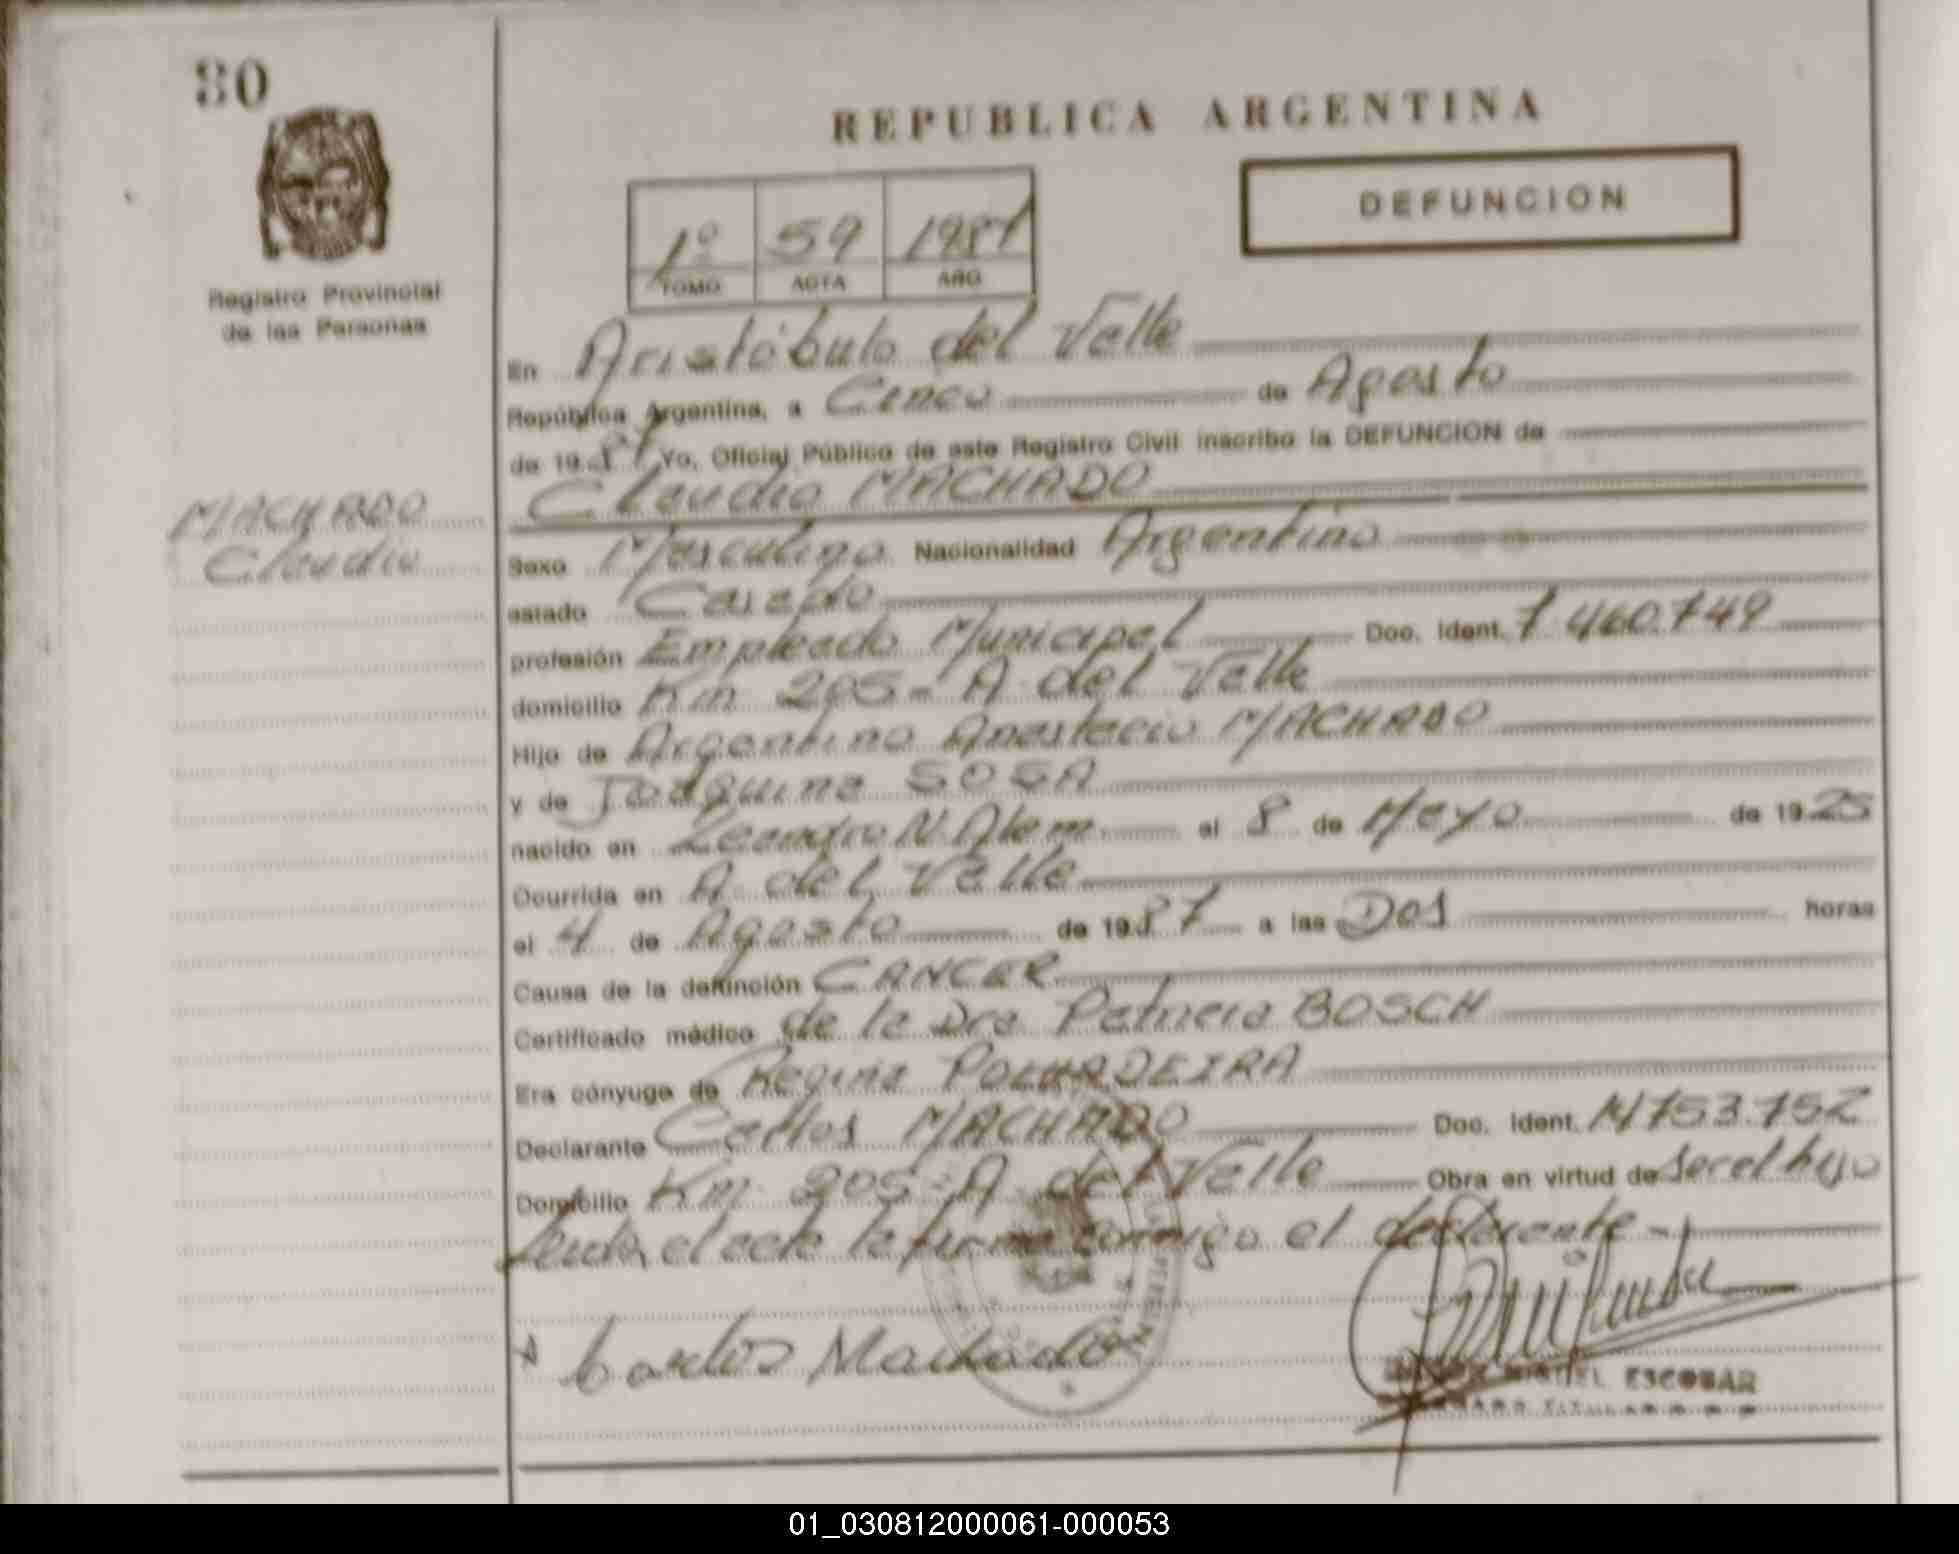 80
REPUBLICA ARGENTINA
DEFUNCION
1º 59 1987
TOMO ACTA AÑO
Registro Provincial
de las Personas
En Aristóbulo del Valle
República Argentina, a Cinco de Agosto
de 1987 Yo, Oficial Público de este Registro Civil inscribo la DEFUNCION de
Claudio MACHADO
MACHADO
Claudio
Sexo Masculino Nacionalidad Argentino
estado Casado
profesión Empleado Municipal Doc. Ident. 7.460.749
domicilio Km 205 - A. del Valle
Hijo de Argentino Anastacio MACHADO
y de Joaquina SOSA
nacido en Leandro N. Alem el 8 de Mayo de 1925
Ocurrida en A. del Valle
el 4 de Agosto de 1987 a las Dos horas
Causa de la defunción CANCER
Certificado médico de la Dra Patricia BOSCH
Era cónyuge de Regina
Declarante Carlos MACHADO Doc. Ident.
Domicilio Km 205 - A. del Valle Obra en virtud de ser el hijo
Leida el acta la firma conmigo el declarante -
Carlos Machado
MIGUEL ESCOBAR
01_030812000061-000053